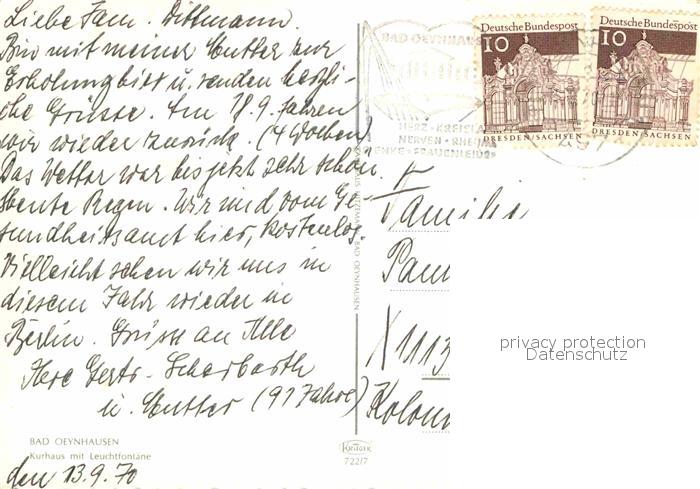 Liebe Fam. Dittmann.
Bin mit meiner Mutter zur
Erholung hier u. senden herzli-
che Grüsse. Am 18.9. fahren
wir wieder zurück. (4 Wochen)
Das Wetter war bis jetzt sehr schön.
heute Regen. Wir sind vom Ge-
sundheitsamt hier, kostenlos.
Vielleicht sehen wir uns in
diesem Jahr wieder in
Berlin. Grüsse an Alle
Ihre Gertr. Scharbarth
u. Mutter (91 Jahre)
BAD OEYNHAUSEN
Kurhaus mit Leuchtfontäne
den 13.9.70
BAD OEYNHAUSEN
HERZ-KREISLA
NERVEN-RHEUMA
ENKE-FRAUENLEIDEN
Deutsche Bundespost
10
DRESDEN/SACHSEN
Deutsche Bundespost
10
DRESDEN/SACHSEN
BAD OEYNHAUSEN
KRÜGER
722/7
Familie
X 113
Kolon
privacy protection
Datenschutz